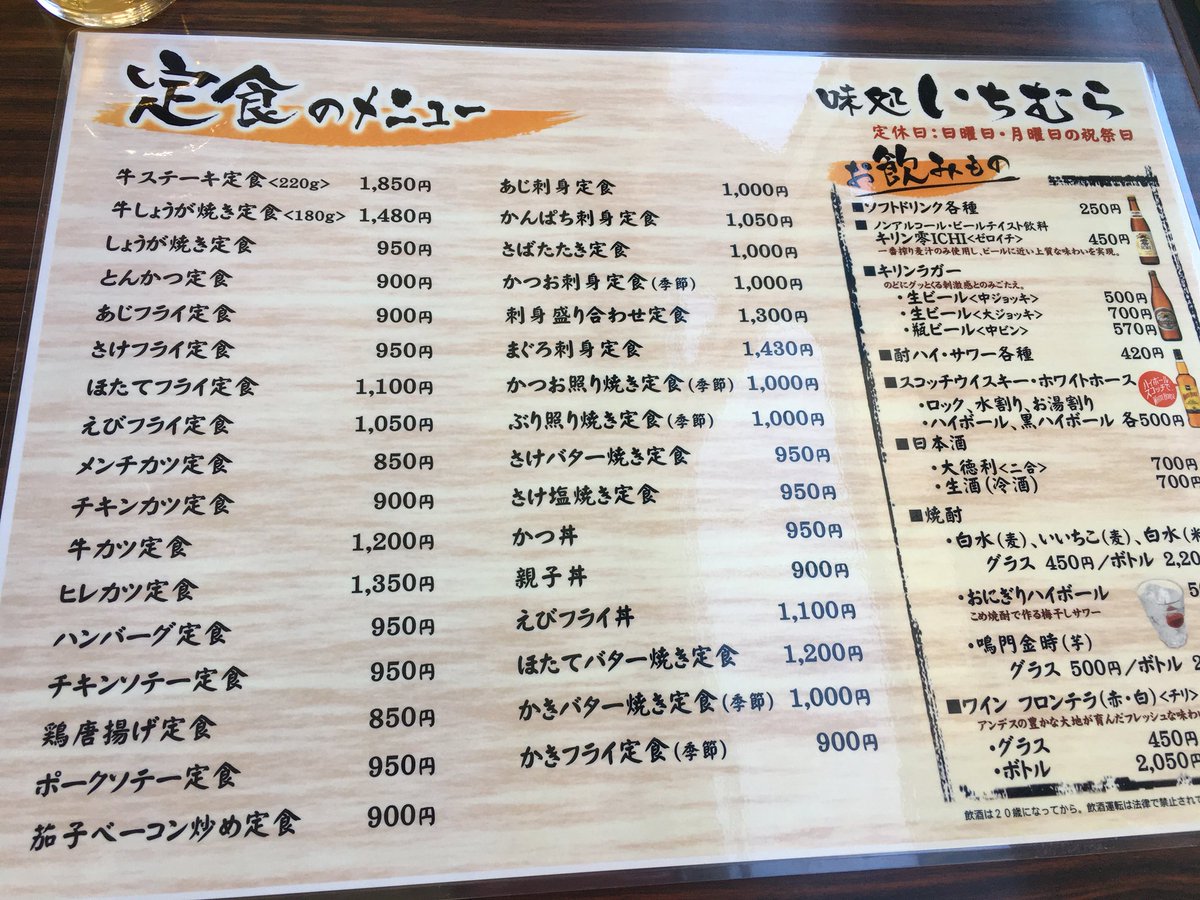 定食のメニュー
牛ステーキ定食<220g> 1,850円
牛しょうが焼き定食<180g> 1,480円
しょうが焼き定食 950円
とんかつ定食 900円
あじフライ定食 900円
さけフライ定食 950円
ほたてフライ定食 1,100円
えびフライ定食 1,050円
メンチカツ定食 850円
チキンカツ定食 900円
牛カツ定食 1,200円
ヒレカツ定食 1,350円
ハンバーグ定食 950円
チキンソテー定食 950円
鶏唐揚げ定食 850円
ポークソテー定食 950円
茄子ベーコン炒め定食 900円
あじ刺身定食 1,000円
かんぱち刺身定食 1,050円
さばたたき定食 1,000円
かつお刺身定食(季節) 1,000円
刺身盛り合わせ定食 1,300円
まぐろ刺身定食 1,430円
かつお照り焼き定食(季節) 1,000円
ぶり照り焼き定食(季節) 1,000円
さけバター焼き定食 950円
さけ塩焼き定食 950円
かつ丼 950円
親子丼 900円
えびフライ丼 1,100円
ほたてバター焼き定食 1,200円
かきバター焼き定食(季節) 1,000円
かきフライ定食(季節) 900円
味処いちむら
定休日:日曜日・月曜日の祝祭日
お飲みもの
■ソフトドリンク各種 250円
■ノンアルコール・ビールテイスト飲料
キリン零ICHI<ゼロイチ> 450円
一番搾り麦汁のみ使用し、ビールに近い上質な味わいを実現。
■キリンラガー
のどにグッとくる刺激感とのみごたえ。
・生ビール<中ジョッキ> 500円
・生ビール<大ジョッキ> 700円
・瓶ビール<中ビン> 570円
■酎ハイ・サワー各種 420円
■スコッチウイスキー・ホワイトホース
ハイボール
スコッチで
・ロック、水割り、お湯割り
・ハイボール、黒ハイボール 各500円
■日本酒
・大徳利<二合> 700円
・生酒(冷酒) 700円
■焼酎
・白水(麦)、いいちこ(麦)、白水(米
グラス 450円/ボトル 2,20
・おにぎりハイボール 5
こめ焼酎で作る梅干しサワー
・鳴門金時(芋)
グラス 500円/ボトル 2
■ワイン フロンテラ(赤・白)<チリ>
アンデスの豊かな大地が育んだフレッシュな味わ
・グラス 450円
・ボトル 2,050円
飲酒は20歳になってから。飲酒運転は法律で禁止されて